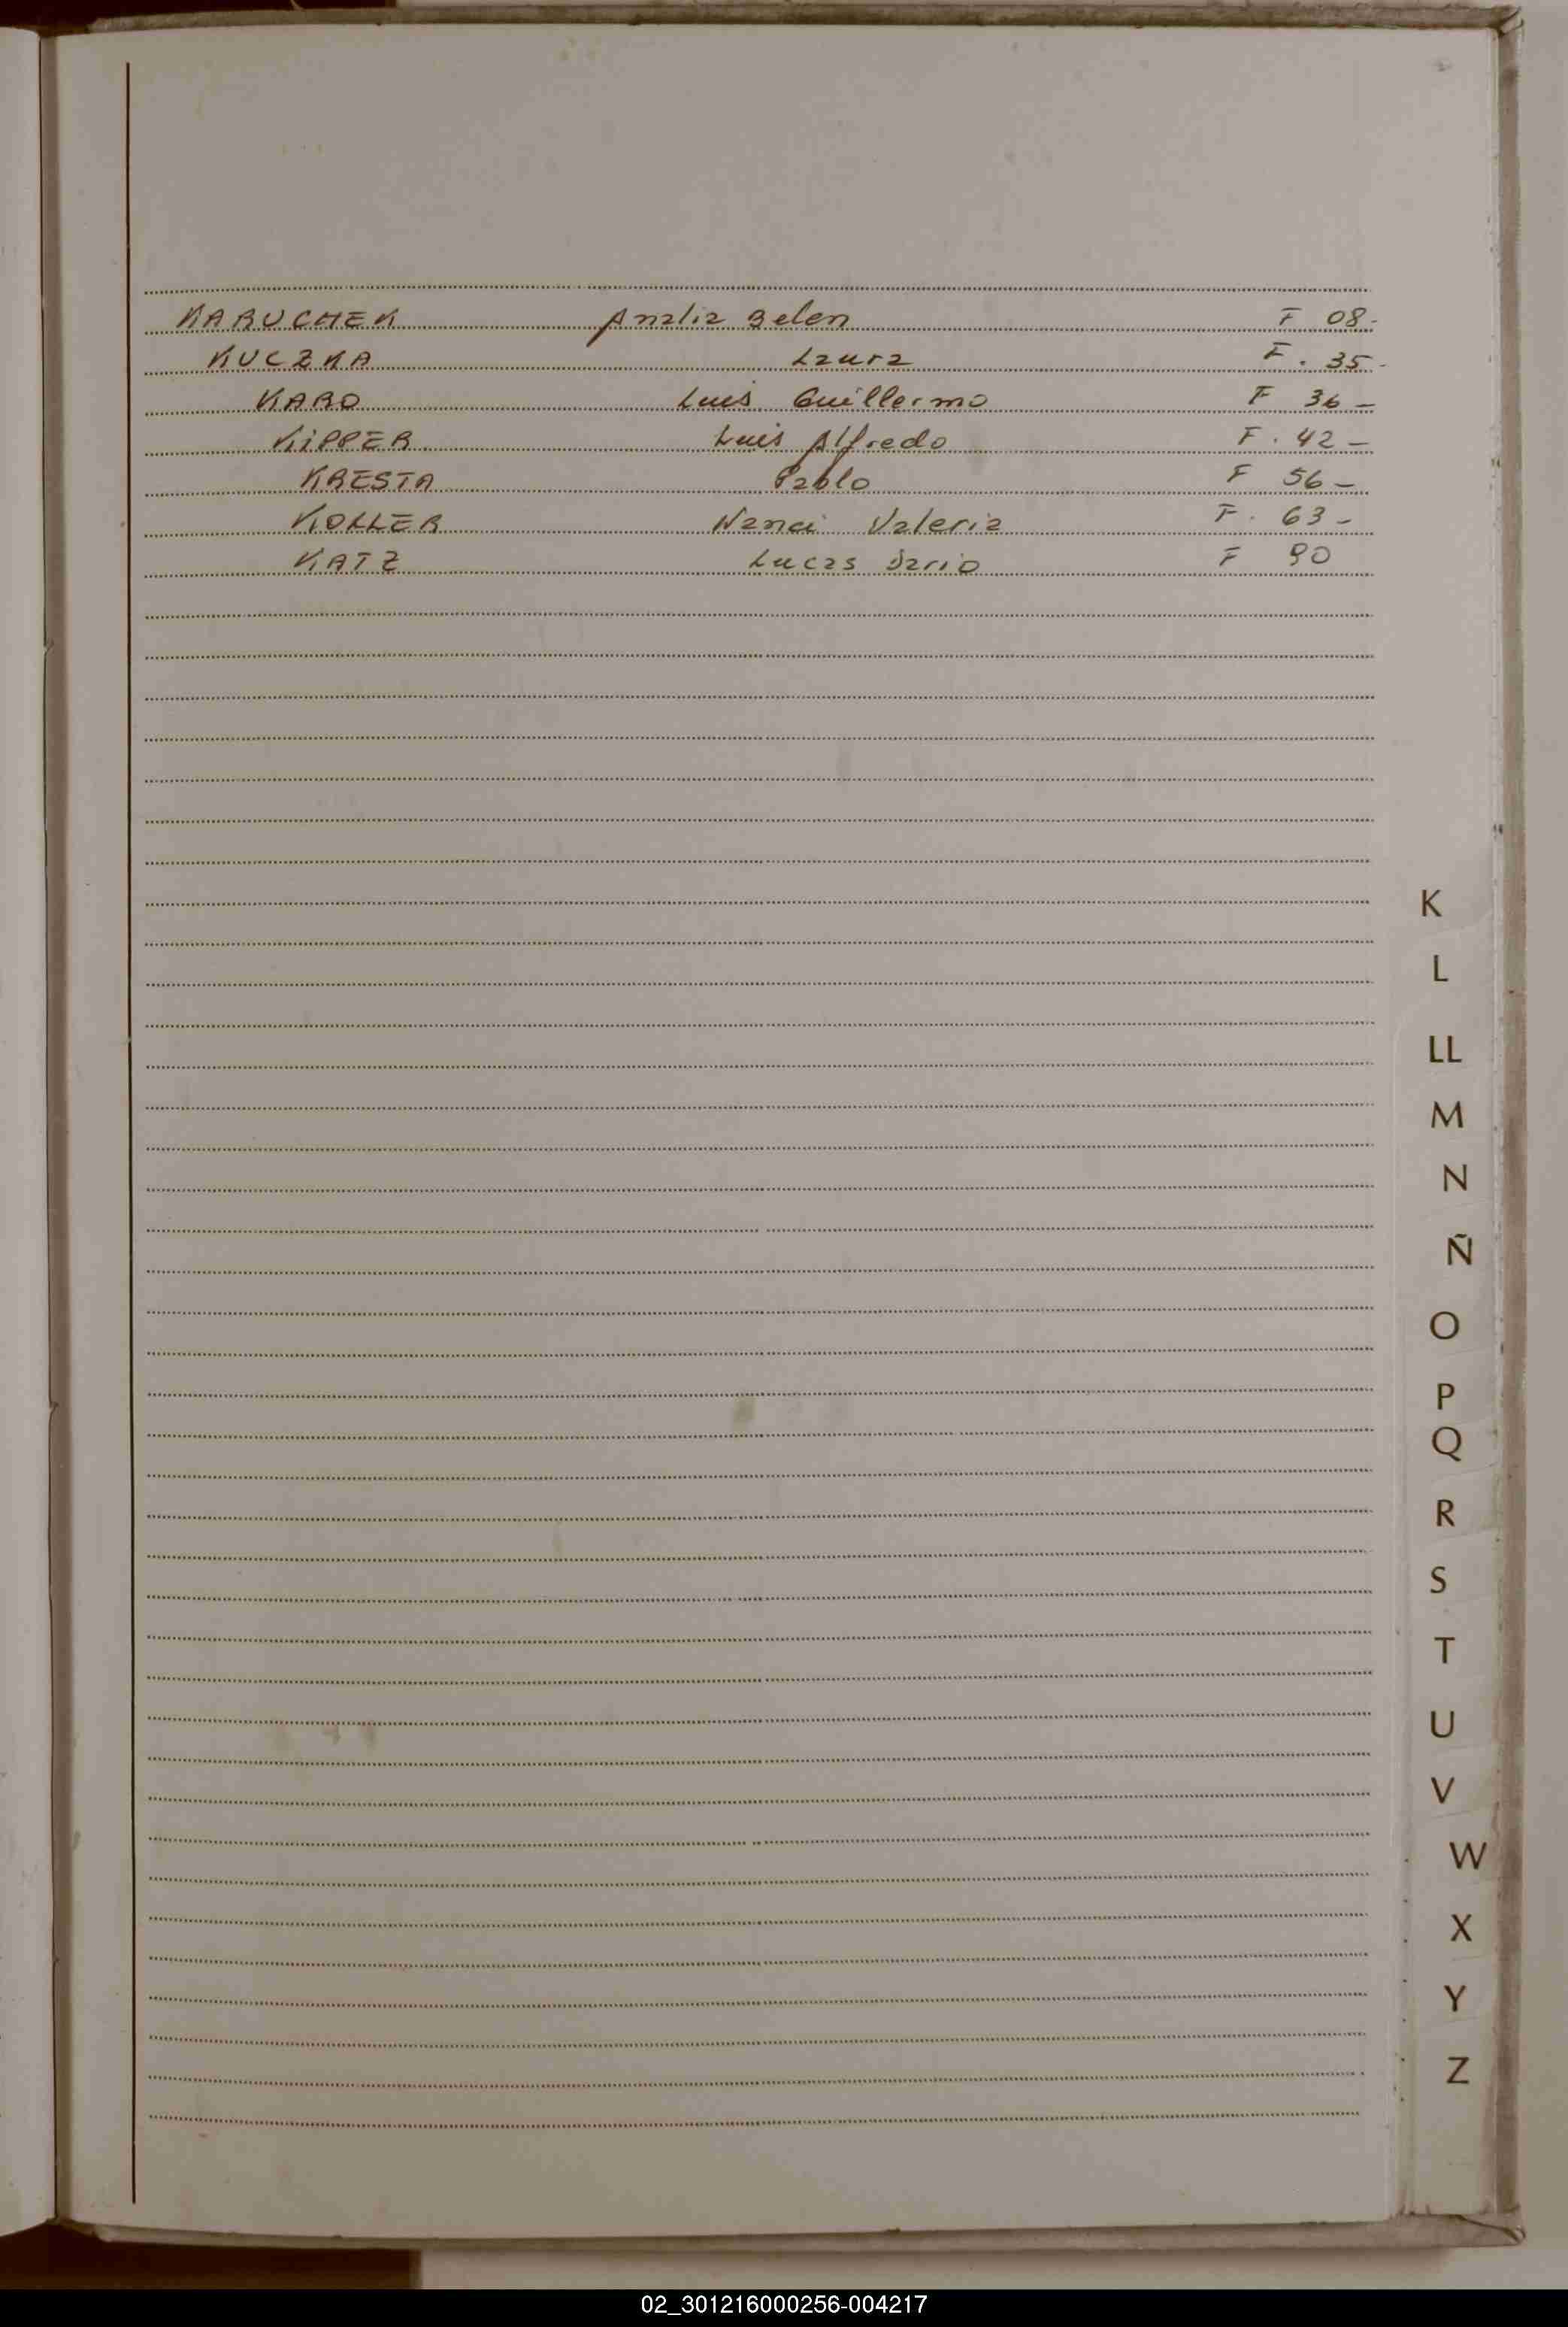 KARUCHEK Analia Belen F 08-
KUCZKA Laura F. 35-
KARO Luis Guillermo F 36-
KiPPER Luis Alfredo F. 42-
KRESTA Pablo F 56-
KOLLER Nanci Valeria F. 63-
KATZ Lucas Dario F 90
K
L
LL
M
N
Ñ
O
P
Q
R
S
T
U
V
W
X
Y
Z
02_301216000256-004217